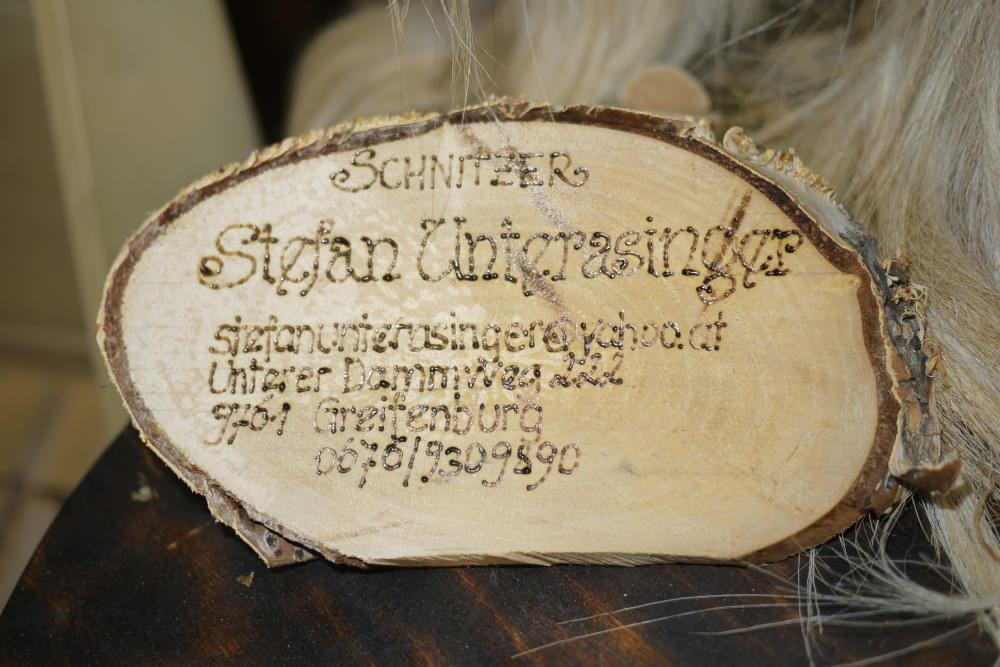 SCHNITZER
Stefan Unterasinger
stefanunterasinger@yahoo.at
Unterer Dammweg
9761 Greifenburg
0676/9309890